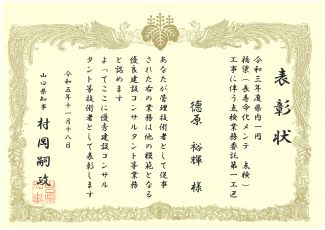 表彰状
令和三年度県内一円
橋梁（長寿命化メンテ 点検）
工事に伴う点検業務委託第一工区
徳原 裕輝 様
あなたが管理技術者として従事
された右の業務は他の模範となる
優良建設コンサルタント等業務
と認めます
よってここに優秀建設コンサル
タント等技術者として表彰します
令和五年十一月十八日
山口県知事 村岡嗣政